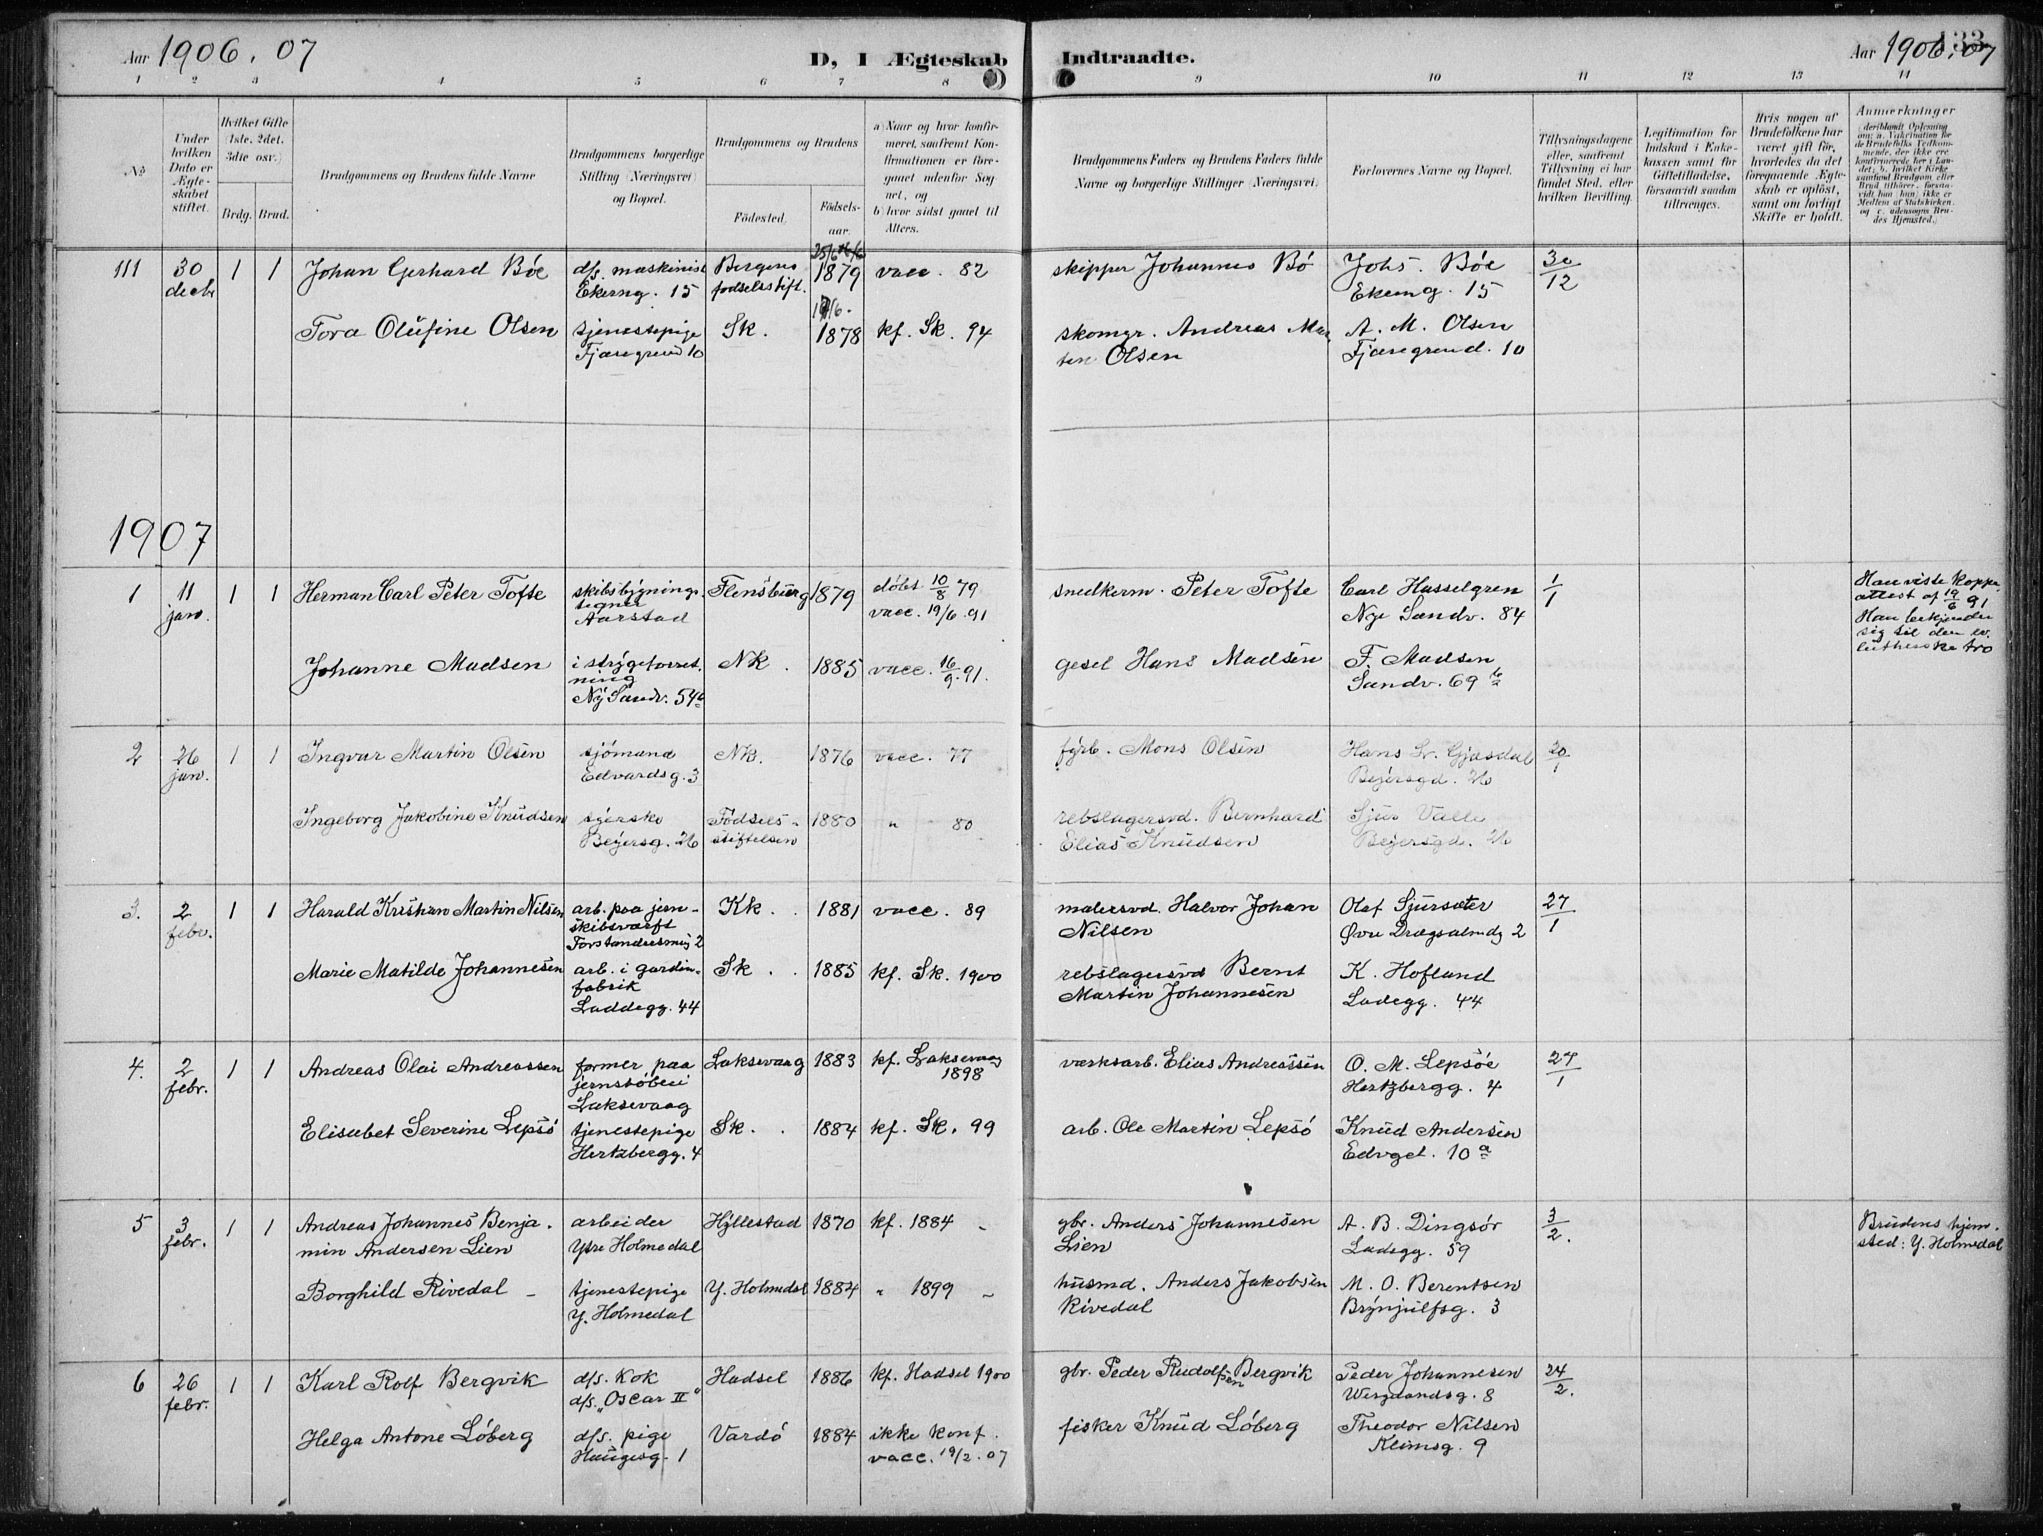 Aar 1906. 07
D, I Ægteskab Indtraadte.
Aar 1906. 07
133
1 2 3 4 5 6 7 8 9 10 11 12 13 14
No.
Under hvilken Dato er Ægteskabet stiftet.
Hvilket Gifte (1ste, 2det, 3die osv.)
Brdg. Brud.
Brudgommens og Brudens fulde Navne
Brudgommens borgerlige Stilling (Næringsvei) og Bopæl.
Brudgommens og Brudens
Födested.
Födsels-aar.
a) Naar og hvor konfirmeret, saafremt Konfirmationen er foregaaet udenfor Sognet, og
b) hvor sidst gaaet til Alters.
Brudgommens Faders og Brudens Faders fulde Navne og borgerlige Stillinger (Næringsvei)
Forlovernes Navne og Bopæl.
Tillysningsdagene eller, saafremt Tillysning ei har fundet Sted, efter hvilken Bevilling.
Legitimation for Indskud i Enkekassen samt for Giftetilladelse, forsaavidt saadan tiltrænges.
Hvis nogen af Brudefolkene har været gift før, hvorledes da det foregaaende Ægteskab er opløst, samt om lovligt Skifte er holdt.
Anmerkninger
111 30 decbr 1 1 Johan Gerhard Bøe d/s. maskinist Ekerng. 15 Bergens fodselsstift. 1879 vacc. 82 skipper Johannes Bö Johs. Bøe Ekerng. 15 30/12
Tora Olufine Olsen tjenestepige Fjæregrend 10 Sk. 1878 kf. Sk. 94 skomgr. Andreas Mar ten Olsen A. M. Olsen Fjæregrend. 10
1907
1 11 jan. 1 1 Herman Carl Peter Tofte skibsbygnings. tegner Aarstad Flensburg 1879 døbt 10/8 79 vacc. 19/6. 91 snedkerm. Peter Tofte Carl Hasselgren Nye Sandv. 84 1/1 Han viste koppeattest af 19/6 91 Han bekjender sig til den ev. lutherske tro
Johanne Madsen i strygeforretning Ny Sandv. 54a NK. 1885 vacc. 16/9. 91. gesel Hans Madsen F. Madsen Sandv. 69
2 26 jan. 1 1 Ingvar Martin Olsen sjömand Edvardsg. 3 NK. 1876 vacc. 77 fyrb. Mons Olsen Hans L. Gjøsdal Beyersgd. 26 20/1
Ingeborg Jakobine Knudsen syerske Beyersg. 26 Födsels-stiftelsen 1880 " 80 rebslagersvd. Bernhard Elias Knudsen Sjur Valle Beyersgd. 26
3. 2 febr. 1 1 Harald Kristian Martin Nilsen arb. paa jern-skibsværft Forstandersmug 2 Kk. 1881 vacc. 89 malersvd. Halvor Johan Nilsen Olaf Sjursæter Øvre Drægsalmdg 2 27/1
Marie Matilde Johannesen arb. i gardin-fabrik Laddegg. 44 Sk. 1885 kf. Sk. 1900 rebslagersvd Bernt Martin Johannesen K. Hofland Ladegg. 44
4. 2 febr. 1 1 Andreas Olai Andreassen former paa jernstøberi Laksevaag Laksevaag 1883 kf. Laksevaag 1898 værksarb. Elias Andreassen O. M. Lepsøe Hertzbergg. 4 27/1
Elisabet Severine Lepsö tjenestepige Hertzbergg. 4 Sk. 1884 kf. Sk. 99 arb. Ole Martin Lepsö Knud Andersen Edvget. 10 a
5 3 febr. 1 1 Andreas Johannes Benjamin Andersen Lien arbeider Ytre Holmedal Hyllestad 1870 kf. 1884 gbr. Anders Johannesen Lien A. B. Dingsör Ladegg. 59 3/2. Brudens hjemsted: Y. Holmedal
Borghild Rivedal tjenestepige Y. Holmedal Y. Holmedal 1884 " 1899 husmd. Anders Jakobsen Rivedal M. O. Berentsen Brynjulfsg. 3
6 26 febr. 1 1 Karl Rolf Bergvik d/s. kok d/s. "Oscar II" Hadsel 1886 kf. Hadsel 1900 gbr. Peder Rudolfsen Bergvik Peder Johannesen Wergelandsg. 8 24/2.
Helga Antone Löberg d/s. pige Haugesg. 1 Vardö 1884 ikke konf. vacc. 19/2. 07 fisker Knud Löberg Theodor Nilsen Klimsg. 9